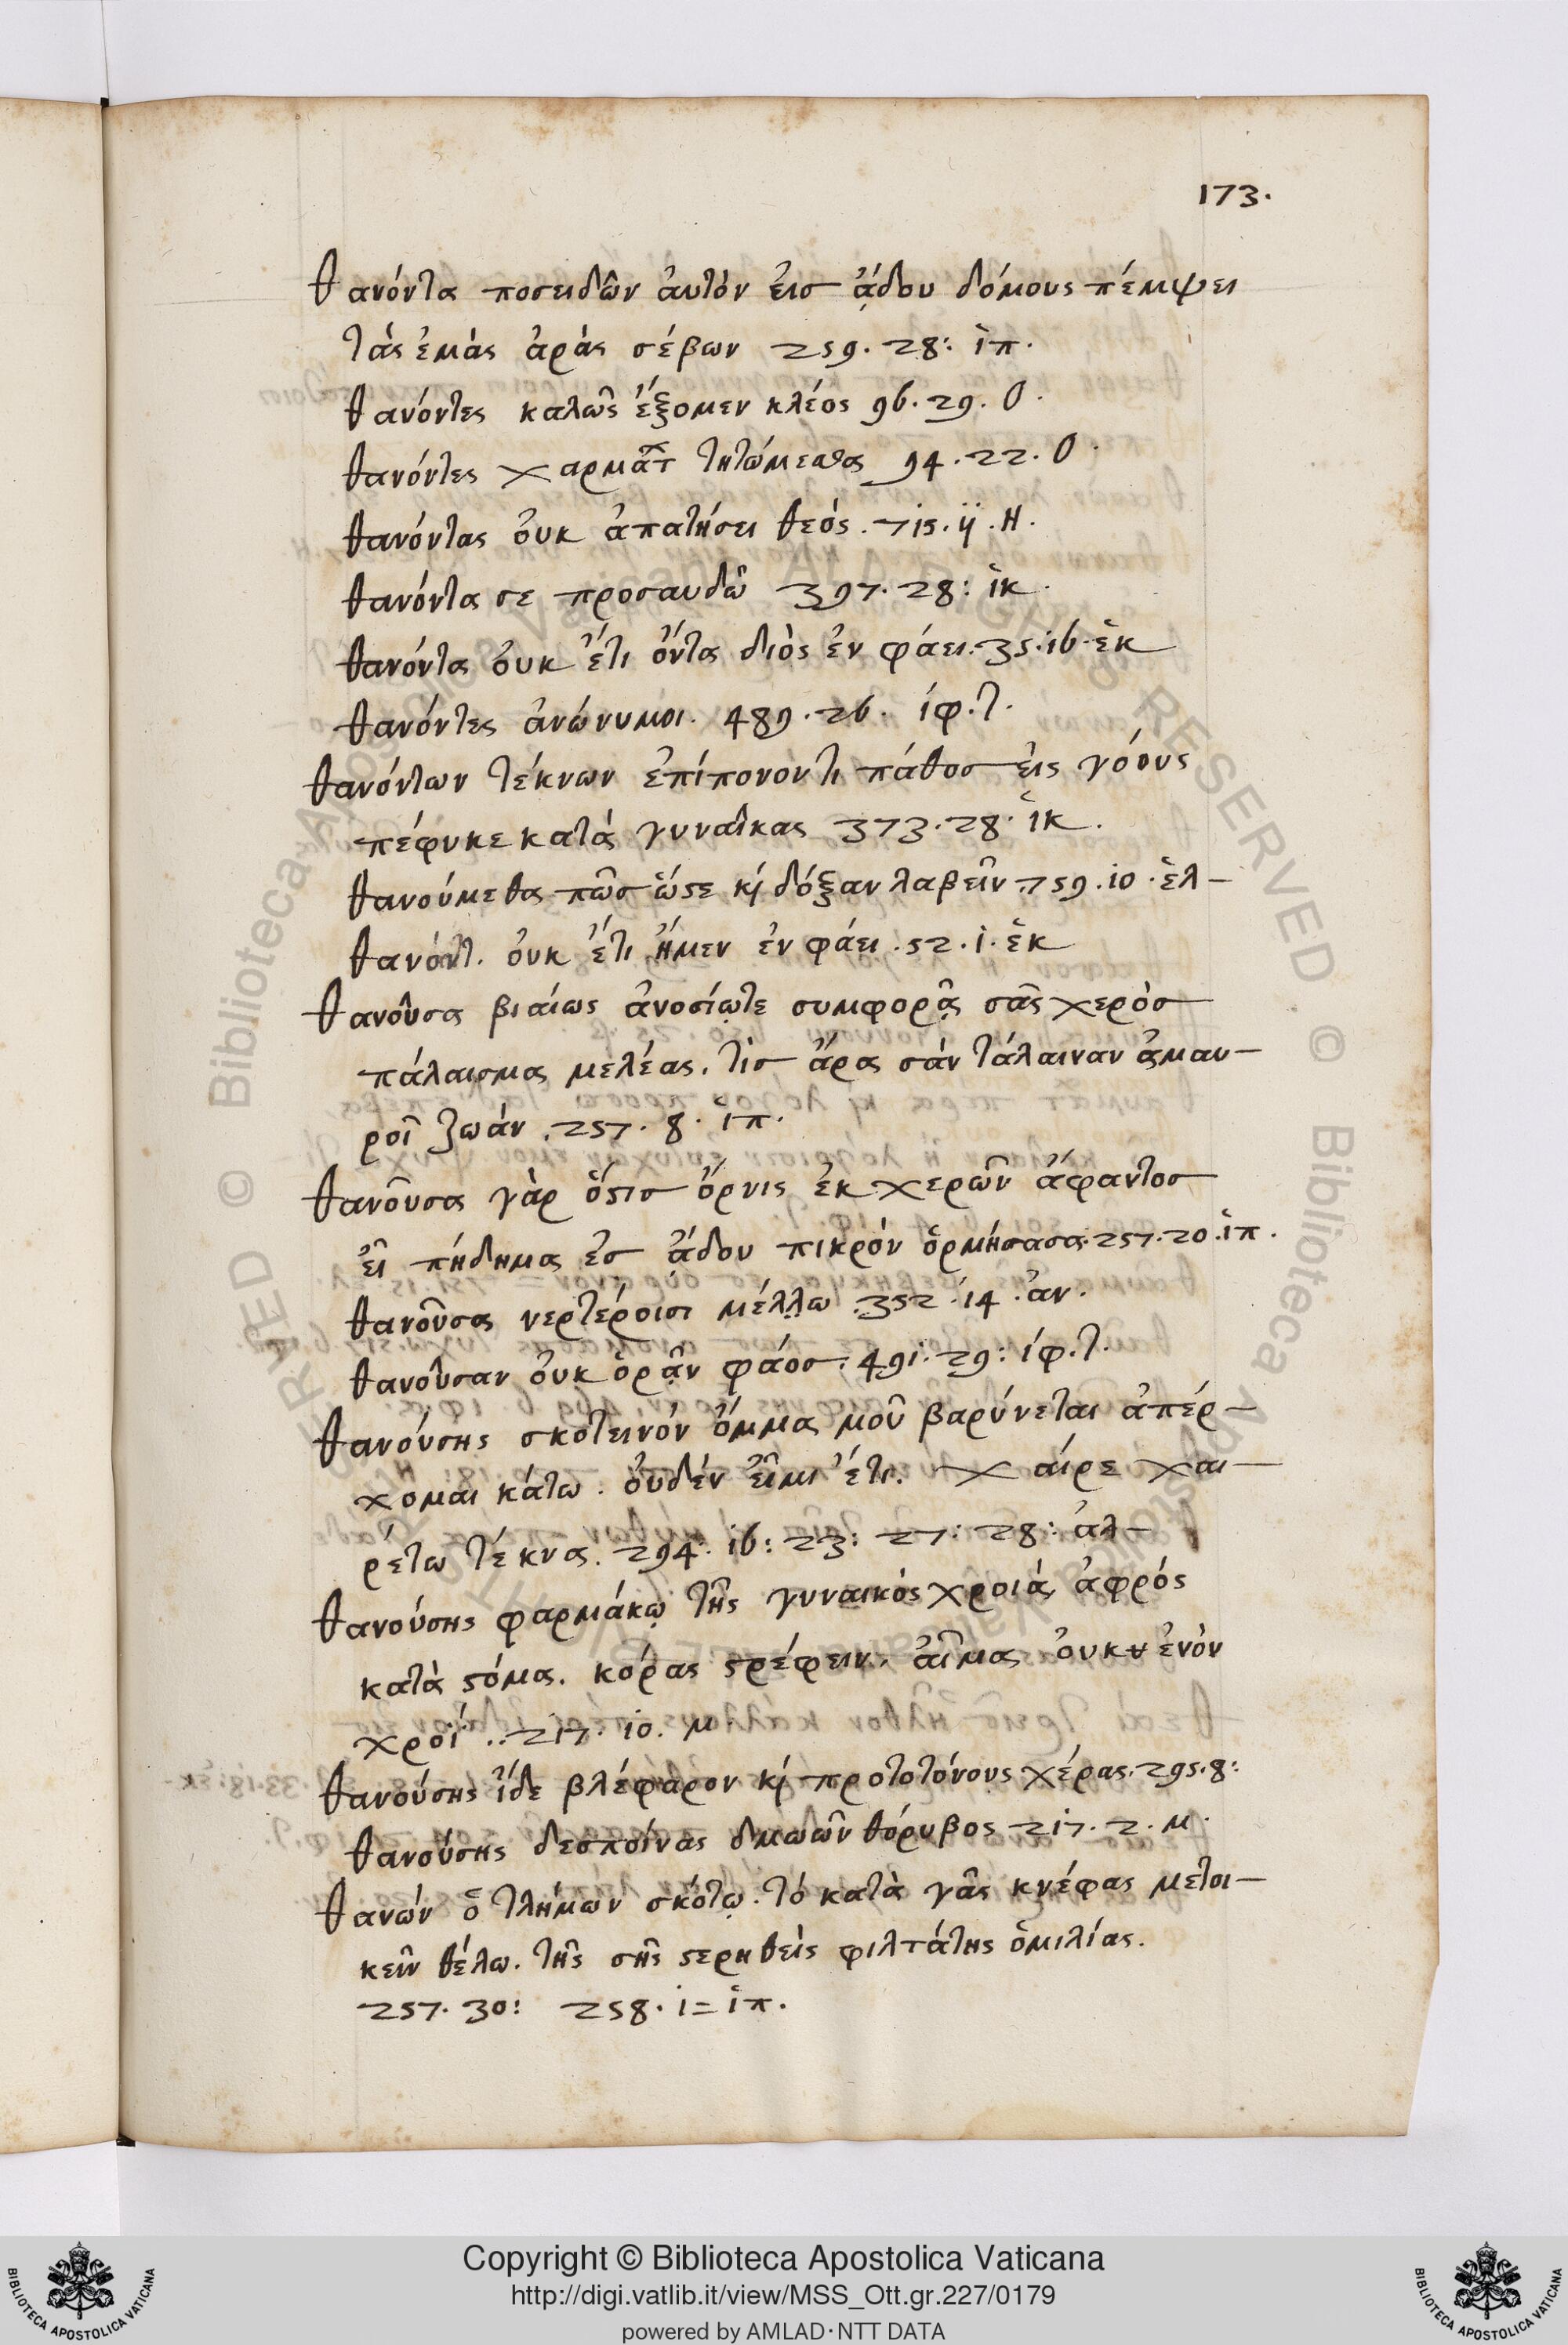 173.
θανόντα ποσειδῶν ἀυτὸν ἐισ ᾅδου δόμους πέμψει
τὰς ἐμὰς ἀρὰς σέβων 259. 28: ἱπ.
θανόντες καλῶς ἕξομεν κλέος 96. 29. Ο.
θανόντες 94. 22. Ο.
θανόντας ὀυκ ἀπατήσει θεός. 715. ij. Η.
θανόντα σε προσαυδῶ 397. 28: ἱκ.
θανόντα ὀυκ ἔτι ὄντα διὸς ἐν φάει. 35. 16. ἑκ
θανόντες ἀνώνυμοι. 489. 26. ἰφ. τ.
θανόντων τέκνων ἐπίπονόντι πάθοσ ἐις γόους
πέφυκε κατὰ γυναῖκας 373. 28. ἱκ.
θανούμεθα πῶσ ὥϛε κὶ δόξαν λαβεῖν. 759. 10. ἑλ-
θανόντ. ὀυκ ἔτι ἦμεν ἐν φάει. 52. 1. ἑκ
θανοῦσα βιαίως ἀνοσίῳτε συμφορᾷς σᾶς χερὸσ
πάλαισμα μελέας. τὶσ ἄρα σὰν τάλαιναν ἀμαυ-
ροῖ ζωάν. 257. 8. ἱπ.
θανοῦσα γὰρ ὅϛισ ὄρνις ἐκ χερῶν ἄφαντοσ
ἐῖ πήδημα ἐσ ἅδου πικρόν ὁρμήσασα. 257. 20. ἱπ.
θανοῦσα νερτέροισι μέλλω. 352. 14. ἀν.
θανοῦσαν ὀυκ ὁρᾷν φάοσ. 491. 29: ἰφ. τ.
θανόυσης σκοτεινὸν ὄμμα μοῦ βαρύνεται ἀπέρ-
χομαι κάτω. ὀυδὲν ἐῖμι ἔτι. χαίρε χαι-
ρέτω τέκνα. 294. 16: 23: 27: 28: ἀλ-
θανούσης φαρμάκῳ τῆς γυναικὸς χροιά, ἀφρός
κατὰ ϛόμα. κόρας ϛρέφειν. ἀῖμα ὀυκ ἐνὸν
χροΐ.. 217. 10. μ.
θανούσης ἴδε βλέφαρον κὶ προτοτόνους χέρας. 295. 8:
θανούσης δεσποίνας δμωῶν θόρυβος 217. 2. μ.
θανών ὁ τλήμων σκότῳ. τό κατὰ γᾶς κνέφας μετοι-
κεῖν θέλω. τῆς σῆς ϛερηθεὶς φιλτάτης ὁμιλίας.
257. 30: 258. 1= ἱπ.
Copyright © Biblioteca Apostolica Vaticana
http://digi.vatlib.it/view/MSS_Ott.gr.227/0179
powered by AMLAD·NTT DATA